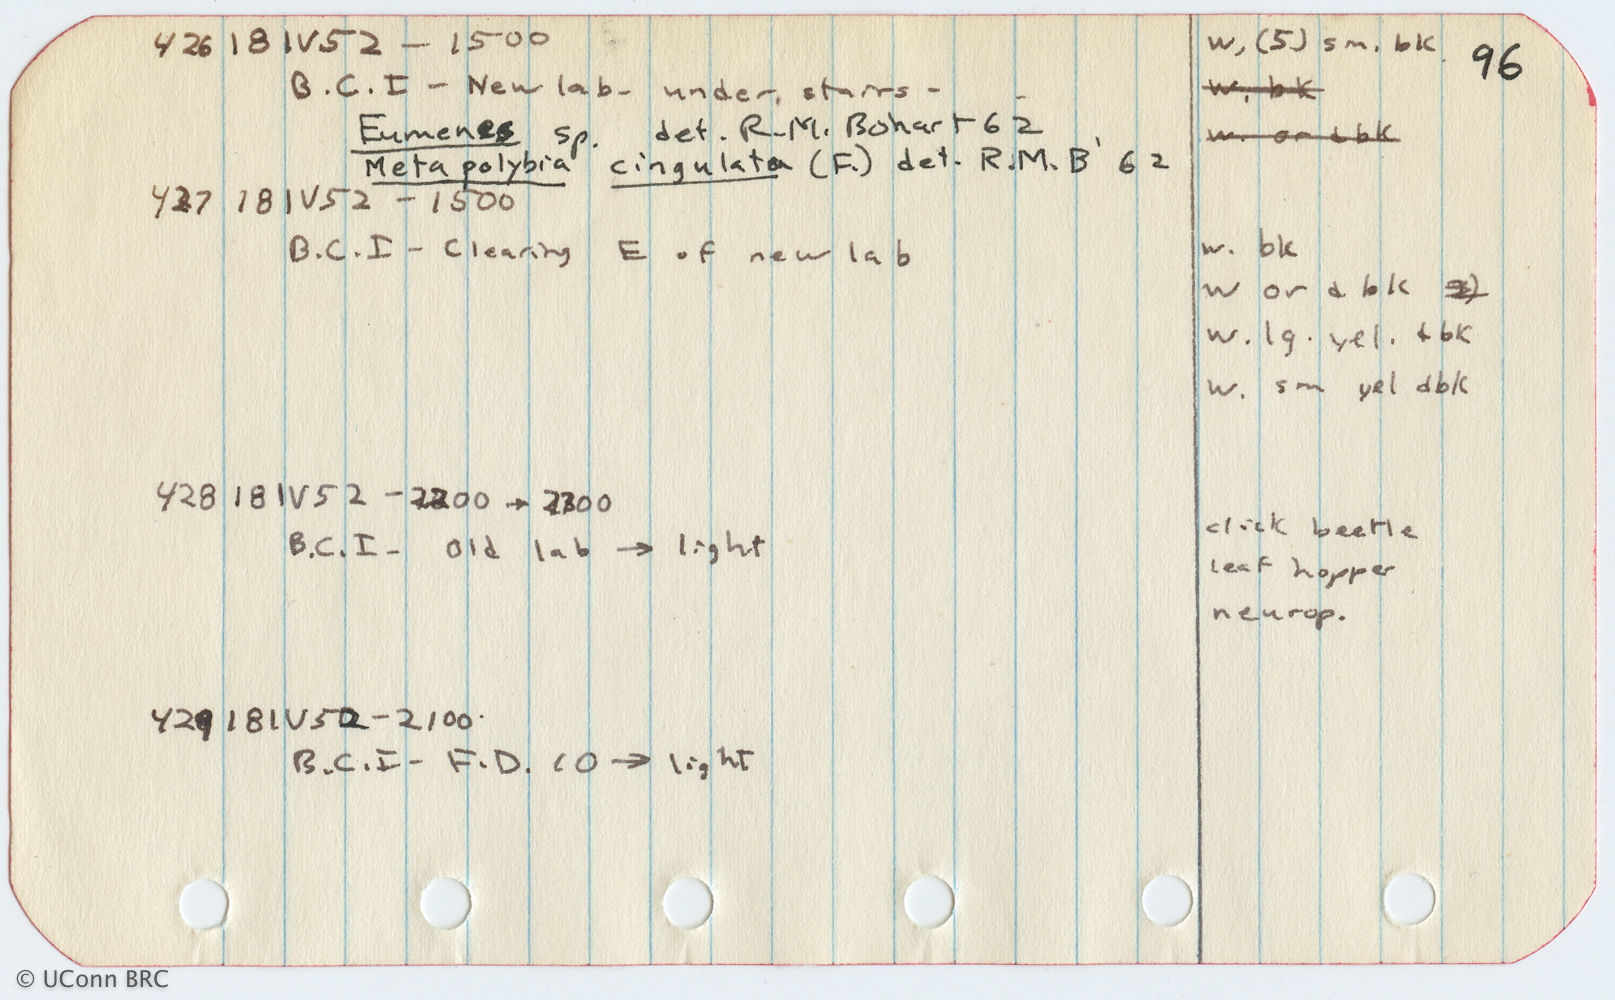 426 18IV52 - 1500
w, (5) sm. bk
96
B.C.I - New lab - under stairs -
w. bk
Eumenes sp. det. R.M. Bohart 62
w. or & bk
Metapolybia cingulata (F.) det. R.M.B' 62
427 18IV52 - 1500
B.C.I - Clearing E of new lab
w. bk
w or & bk
w. lg. yel. & bk
w. sm yel & bk
428 18IV52 - 2200 → 2300
B.C.I - Old lab → light
click beetle
leaf hopper
neurop.
429 18IV52 - 2100
B.C.I - F.D. 10 → light
© UConn BRC